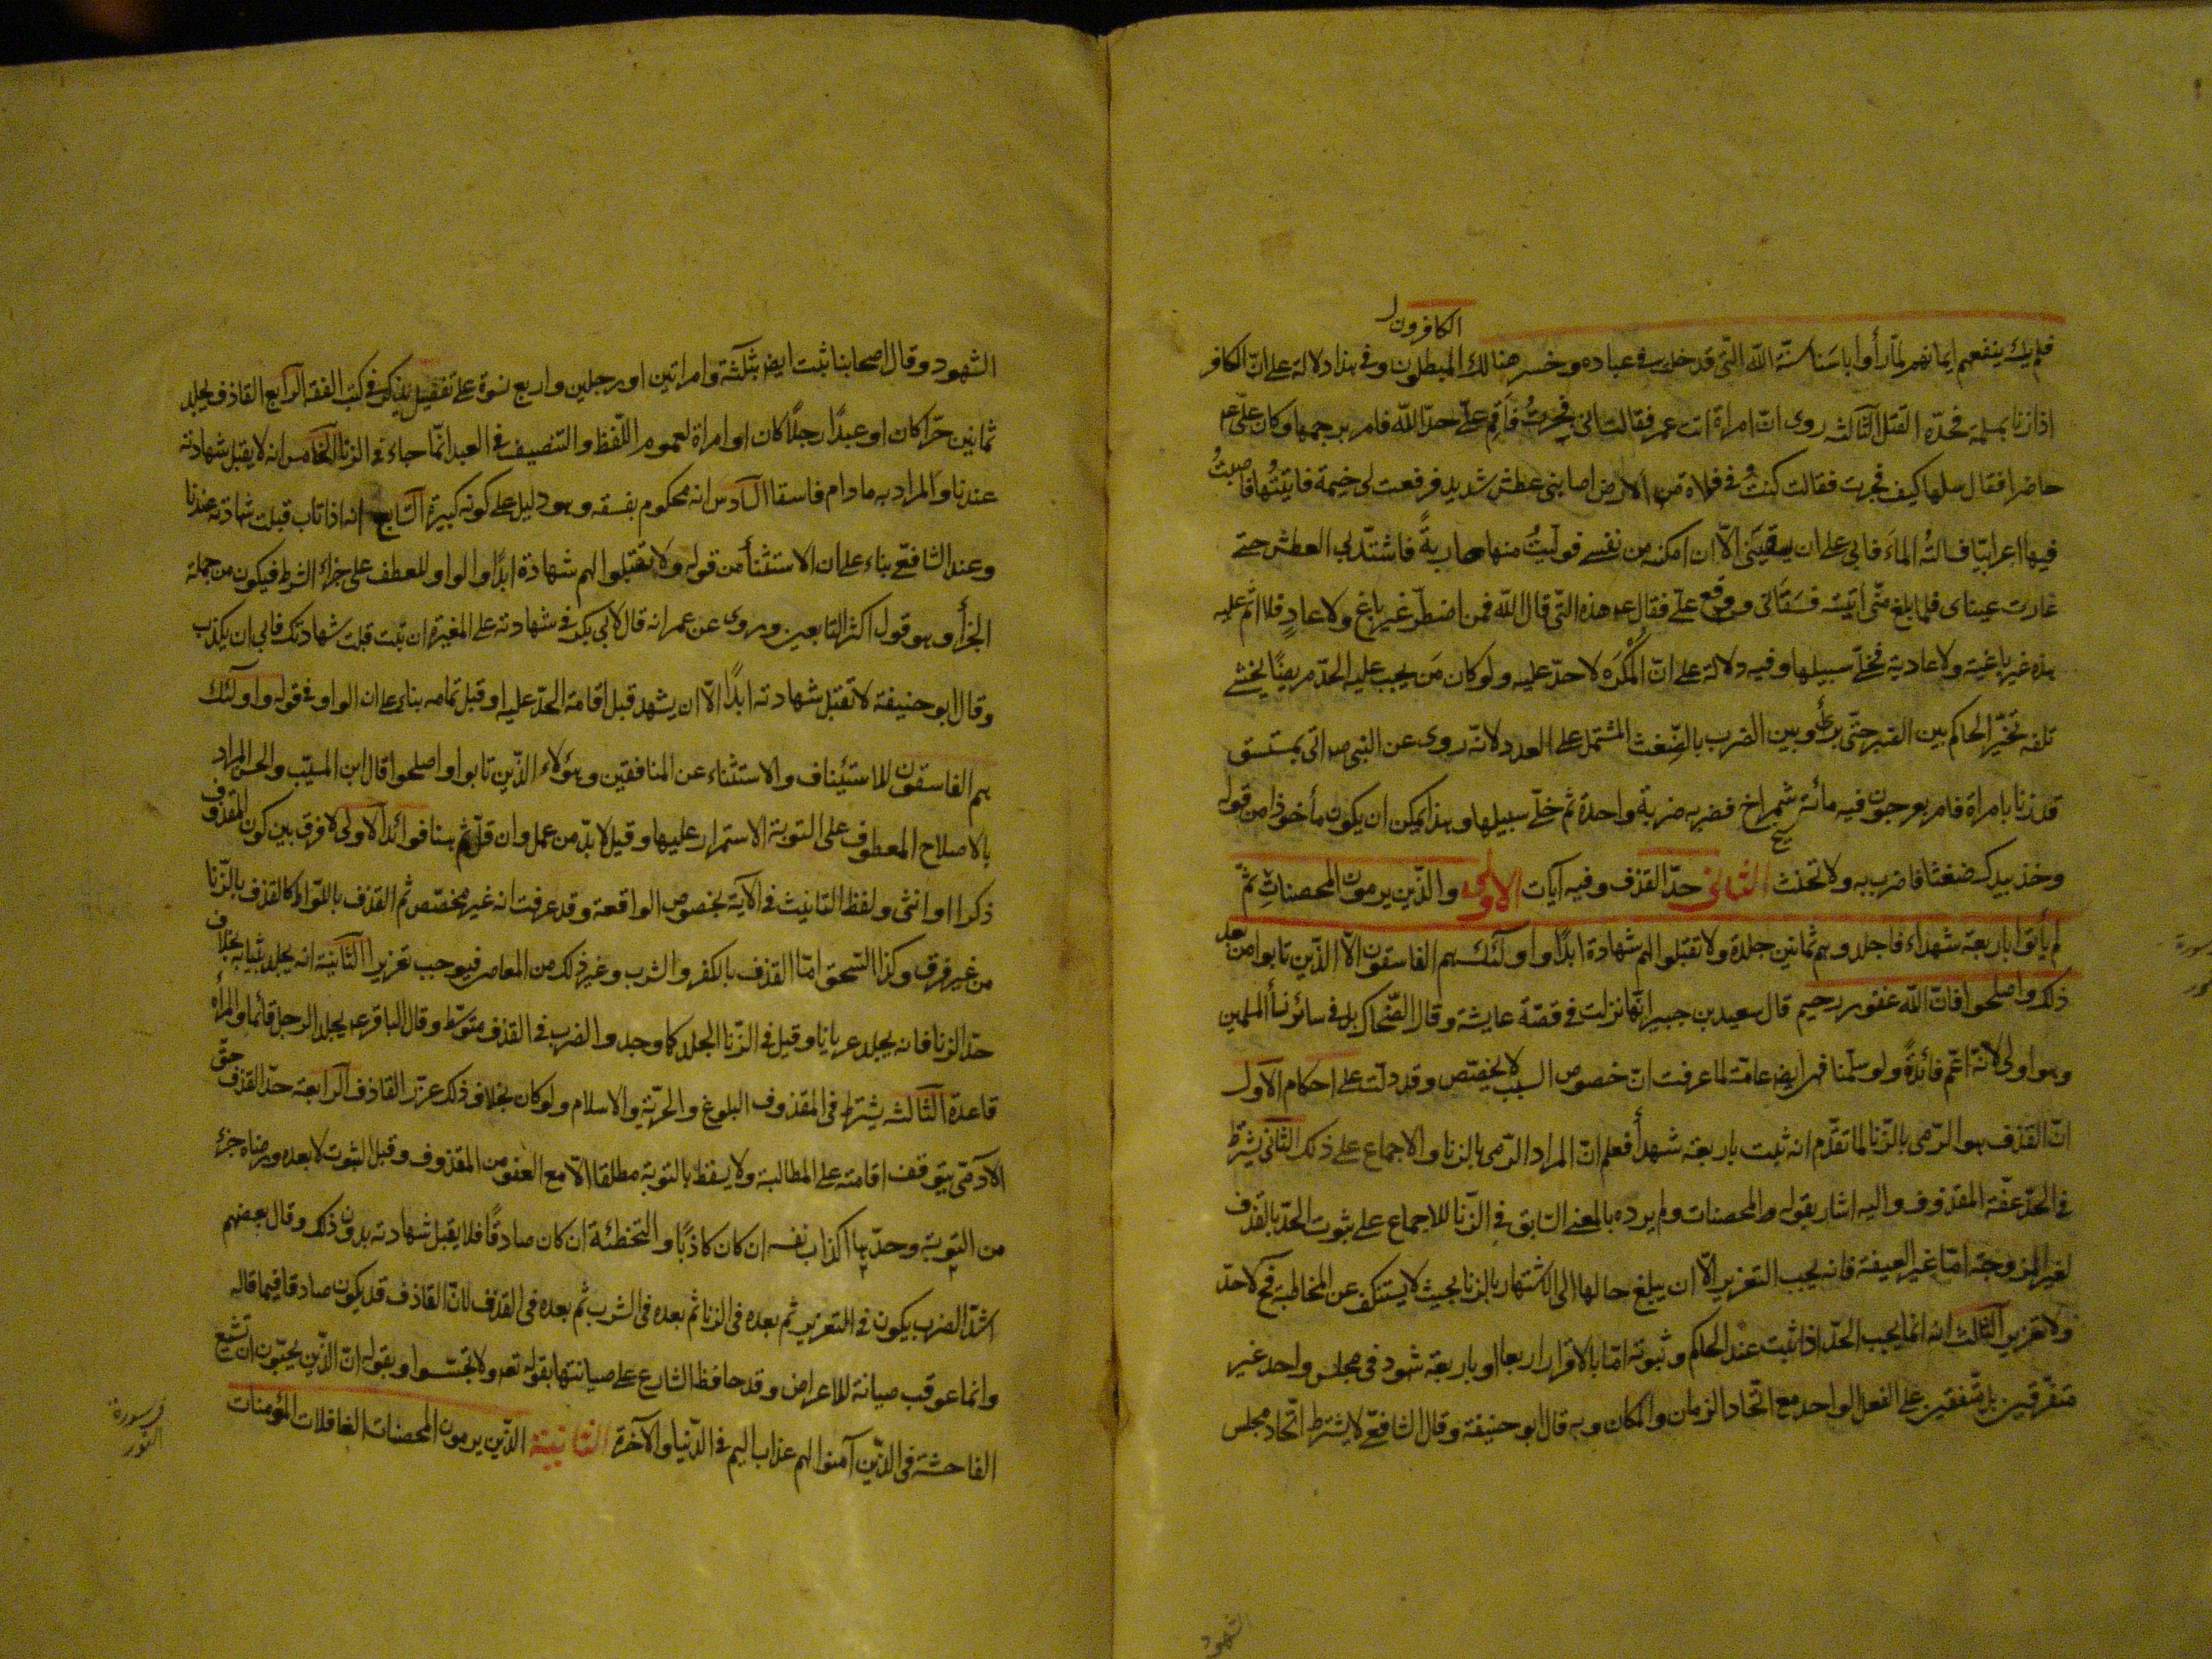 الكافرون
فلم يك ينفعهم ايمانهم لمّا رأوا باسَنا سنّة اللّه الّتى قد خلت فى عباده وخسر هنالك المبطلون وفى هذا دلالة على انّ الكافر
اذا زنا بمسلمة فحدّه القتل الثّالثه روى انّ امراة اتت عمر فقالت انى فجرتُ فاَقِم علىّ حدّ اللّه فامر برجمها وكان علىّ ع
حاضرا فقال سلها كيف فجرت فقالت كنتُ فى فلاة من الارض اصابنى عطش شديد فرفعت لى خيمة فاتيتُها فاصبتُ
فيها اعرابيّا فسالتُه الماءَ فابى على ان يسقيَنى الاّ ان امكنه من نفسى فولّيتُ منها هاربةً فاشتدّ بى العطش حتى
غارت عيناى فلما بلغ منّى اتيته فسَقانى ووقع علىّ فقال ع هذه الّتى قال اللّه فمن اضطرّ غير باغ ولا عادٍ فلا اثم عليه
هذه غير باغية ولا عادية فخلّى سبيلها وفيه دلالة على انّ المُكْرَه لا حدّ عليه ولو كان مَن يجب عليه الحدّ مريضًا يخشى
تلفه تخيّر الحاكم بين الصّبر حتّى يبرأ وبين الضرب بالضِّغث المشتمل على العدد لانّه روى عن النبى ص اتى بمستسق
قد زنا بامراة فامر بعرجون فيه مائة شمراخ فضربه ضربة واحدة ثم خلّى سبيلها وهذا يمكن ان يكون مأخوذا من قوله
وخذ بيدك ضغثا فاضرب به ولا تحنث الثّانى حدّ القذف وفيه آيات الاولى والّذين يرمون المحصناتِ ثمّ
لم يأتوا باربعة شهداء فاجلدوهم ثمانين جلدة ولا تقبلوا لهم شهادة ابدًا واولئك هم الفاسقون الاّ الّذين تابوا من بعد
ذلك واصلحوا فانّ اللّه غفور رحيم قال سعيد بن جبير انّها نزلت فى قصّة عايشة وقال الضّحاك بل فى سائر نسأ المسلمين
وهو اولى لانّه اعّم فائدةً ولو سلّمنا فهى ايض عامّة لما عرفت انّ خصوص السبب لا يخصّص وقد دلّت على احكام الاوّل
انّ القذف هو الرّمى بالزّنا لما تقدّم انه ثبت باربعة شهدأ فعلم انّ المراد الرّمى بالزنا والاجماع على ذلك الثّانى يشترط
فى الحدّ عفّة المقذوف واليه اشار بقوله والمحصنات ولم يرده بالمعنى السّابق فى الزّنا للاجماع على ثبوت الحدّ بالقذف
لغير المزوجة امّا غير العفيفة فانه يجب التعزير الاّ ان يبلغ حالها الى الاشتهار بالزنا بحيث لا يستنكف عن المخاطبة فح لا حدّ
ولا تعزير الثّالث انه انّما يجب الحدّ اذا ثبت عند الحاكم وثبوته امّا بالاقرار اربعا او باربعة شهود فى مجلس واحد غير
متفرّقين بل متّفقين على الفعل الواحد مع اتّحاد الزمان والمكان وبه قال ابو حنيفة وقال الشافعىّ لا يشترط اتّحاد مجلس
الشهود
الشهود وقال اصحابنا ثبت ايض بثلثة وامراتين او رجلين واربع نسوة على تفصيل يذكر فى كتب الفقه الرّابع القاذف يجلد
ثمانين حرّا كان او عبدًا رجلاً كان او امراة لعموم اللّفظ والتنصيف فى العبد انّما جاء فى الزنا الخامس انه لا يقبل شهادته
عندنا والمراد به ما دام فاسقا السّادس انه محكوم بفسقه وهو دليل على كونه كبيرة السّابع انه اذا تاب قبلت شهادته عندنا
وعند الشافعىّ بناء على ان الاستثنأ من قوله ولا تقبلوا لهم شهادة ابدًا والواو للعطف على جزاء الشرط فيكون من جملة
الجزأ وهو قول اكثر التابعين وروى عن عمر انه قال لابى بكرة فى شهادته على المغيرة ان تبت قبلت شهادتك فابى ان يكذب
وقال ابو حنيفة لا تقبل شهادته ابدًا الاّ ان يشهد قبل اقامة الحدّ عليه او قبل تمامه بناء على ان الواو فى قوله واولئك
هم الفاسقون للاستيناف والاستثناء عن المنافقين وهؤلاء الّذين تابوا واصلحوا قال ابن المسيّب والحسن المراد
بالاصلاح المعطوف على التوبة الاستمرار عليها وقيل لا بدّ من عمل وان قلّ ثم هنا فوائد الاولى لا فرق بين كون المقذوف
ذكرا او انثى ولفظ التانيث فى الآية لخصوص الواقعة وقد عرفت انه غير مخصّص ثم القذف باللّواط كالقذف بالزّنا
من غير فرق وكذا السّحق امّا القذف بالكفر والشرب وغير ذلك من المعاصى فيوجب تعزيرا الثّانية انه يجلد بثيابه بخلاف
حدّ الزنا فانه يجلد عريانا وقيل فى الزّنا الجلد كما وجد والضرب فى القذف متوسّط وقال الباقر ع يجلد الرجل قائما والمرأة
قاعدة الثّالثه يشترط فى المقذوف البلوغ والحريّة والاسلام ولو كان بخلاف ذلك عزّر القاذف الرّابعة حدّ القذف حقّ
الآدمّى يتوقف اقامته على المطالبة ولا يسقط بالتوبة مطلقا الاّ مع العفو من المقذوف وقبل الثبوت لا بعده ورضاه جزء
من التوبة وحدّها اكذاب نفسه ان كان كاذبًا والتخطئة ان كان صادقًا فلا يقبل شهادته بدون ذلك وقال بعضهم
اشدّ الضرب يكون فى التعزير ثم بعده فى الزنا ثم بعده فى الشرب ثم بعده فى القذف لانّ القاذف قد يكون صادقا فيما قاله
وانما عوقب صيانة للاعراض وقد حافظ الشارع على صيانتها بقوله تعه ولا تجسّسوا وبقوله انّ الّذين يحبّون ان تشيع
الفاحشة فى الّذين آمنوا لهم عذاب اليم فى الدّنيا والآخرة الثّانية الّذين يرمون المحصنات الغافلات المؤمنات
فى سورة
النّور